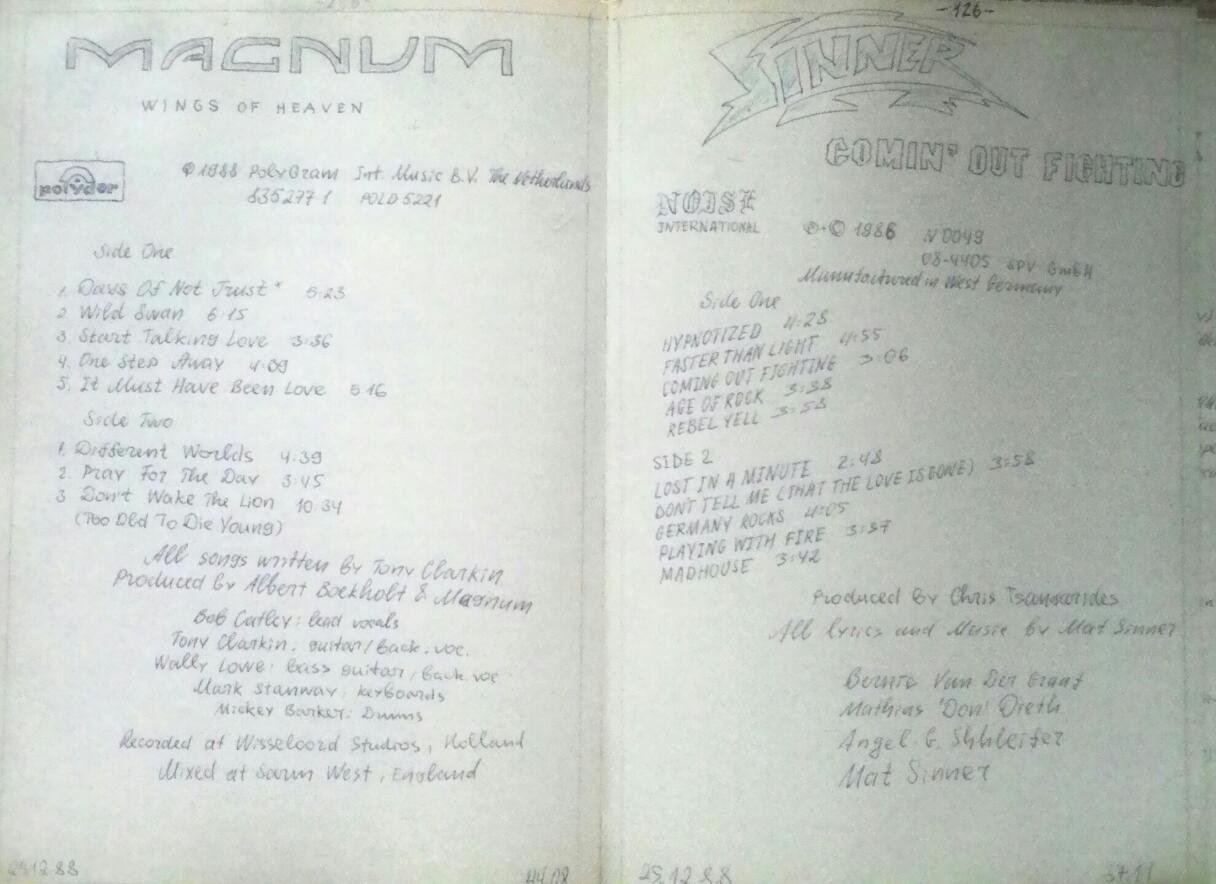 MAGNUM
WINGS OF HEAVEN
polydor
℗ 1988 PolyGram Int. Music B.V. The Netherlands
835277 1 POLD 5221
Side One
1. Days Of Not Trust * 5:23
2 Wild Swan 6:15
3 Start Talking Love 3:36
4. One Step Away 4:09
5. It Must Have Been Love 5 16
Side Two
1. Different Worlds 4:39
2. Pray For The Day 3:45
3 Don't Wake The Lion 10:34
(Too Old To Die Young)
All songs written by Tony Clarkin
Produced by Albert Boekholt & Magnum
Bob Catley: lead vocals
Tony Clarkin: guitar/back.voc.
Wally Lowe: bass guitar/back.voc
Mark Stanway: keyboards
Mickey Barker: Drums
Recorded at Wisseloord Studios, Holland
Mixed at Sarm West, England
25.12.88
44.08
-126-
SINNER
COMIN' OUT FIGHTING
NOISE
INTERNATIONAL
℗+© 1986 N 0049
08-4405 SPV GmbH
Manufactured in West Germany
Side One
HYPNOTIZED 4:28
FASTER THAN LIGHT 4:55
COMING OUT FIGHTING 3:06
AGE OF ROCK 3:38
REBEL YELL 3:58
SIDE 2
LOST IN A MINUTE 2:48
DON'T TELL ME (THAT THE LOVE IS GONE) 3:58
GERMANY ROCKS 4:05
PLAYING WITH FIRE 3:37
MADHOUSE 3:42
Produced by Chris Tsangarides
All lyrics and Music by Mat Sinner
Bernie Van Der Graaf
Mathias 'Don' Dieth
Angel G. Shhleifer
Mat Sinner
25.12.88
37.11